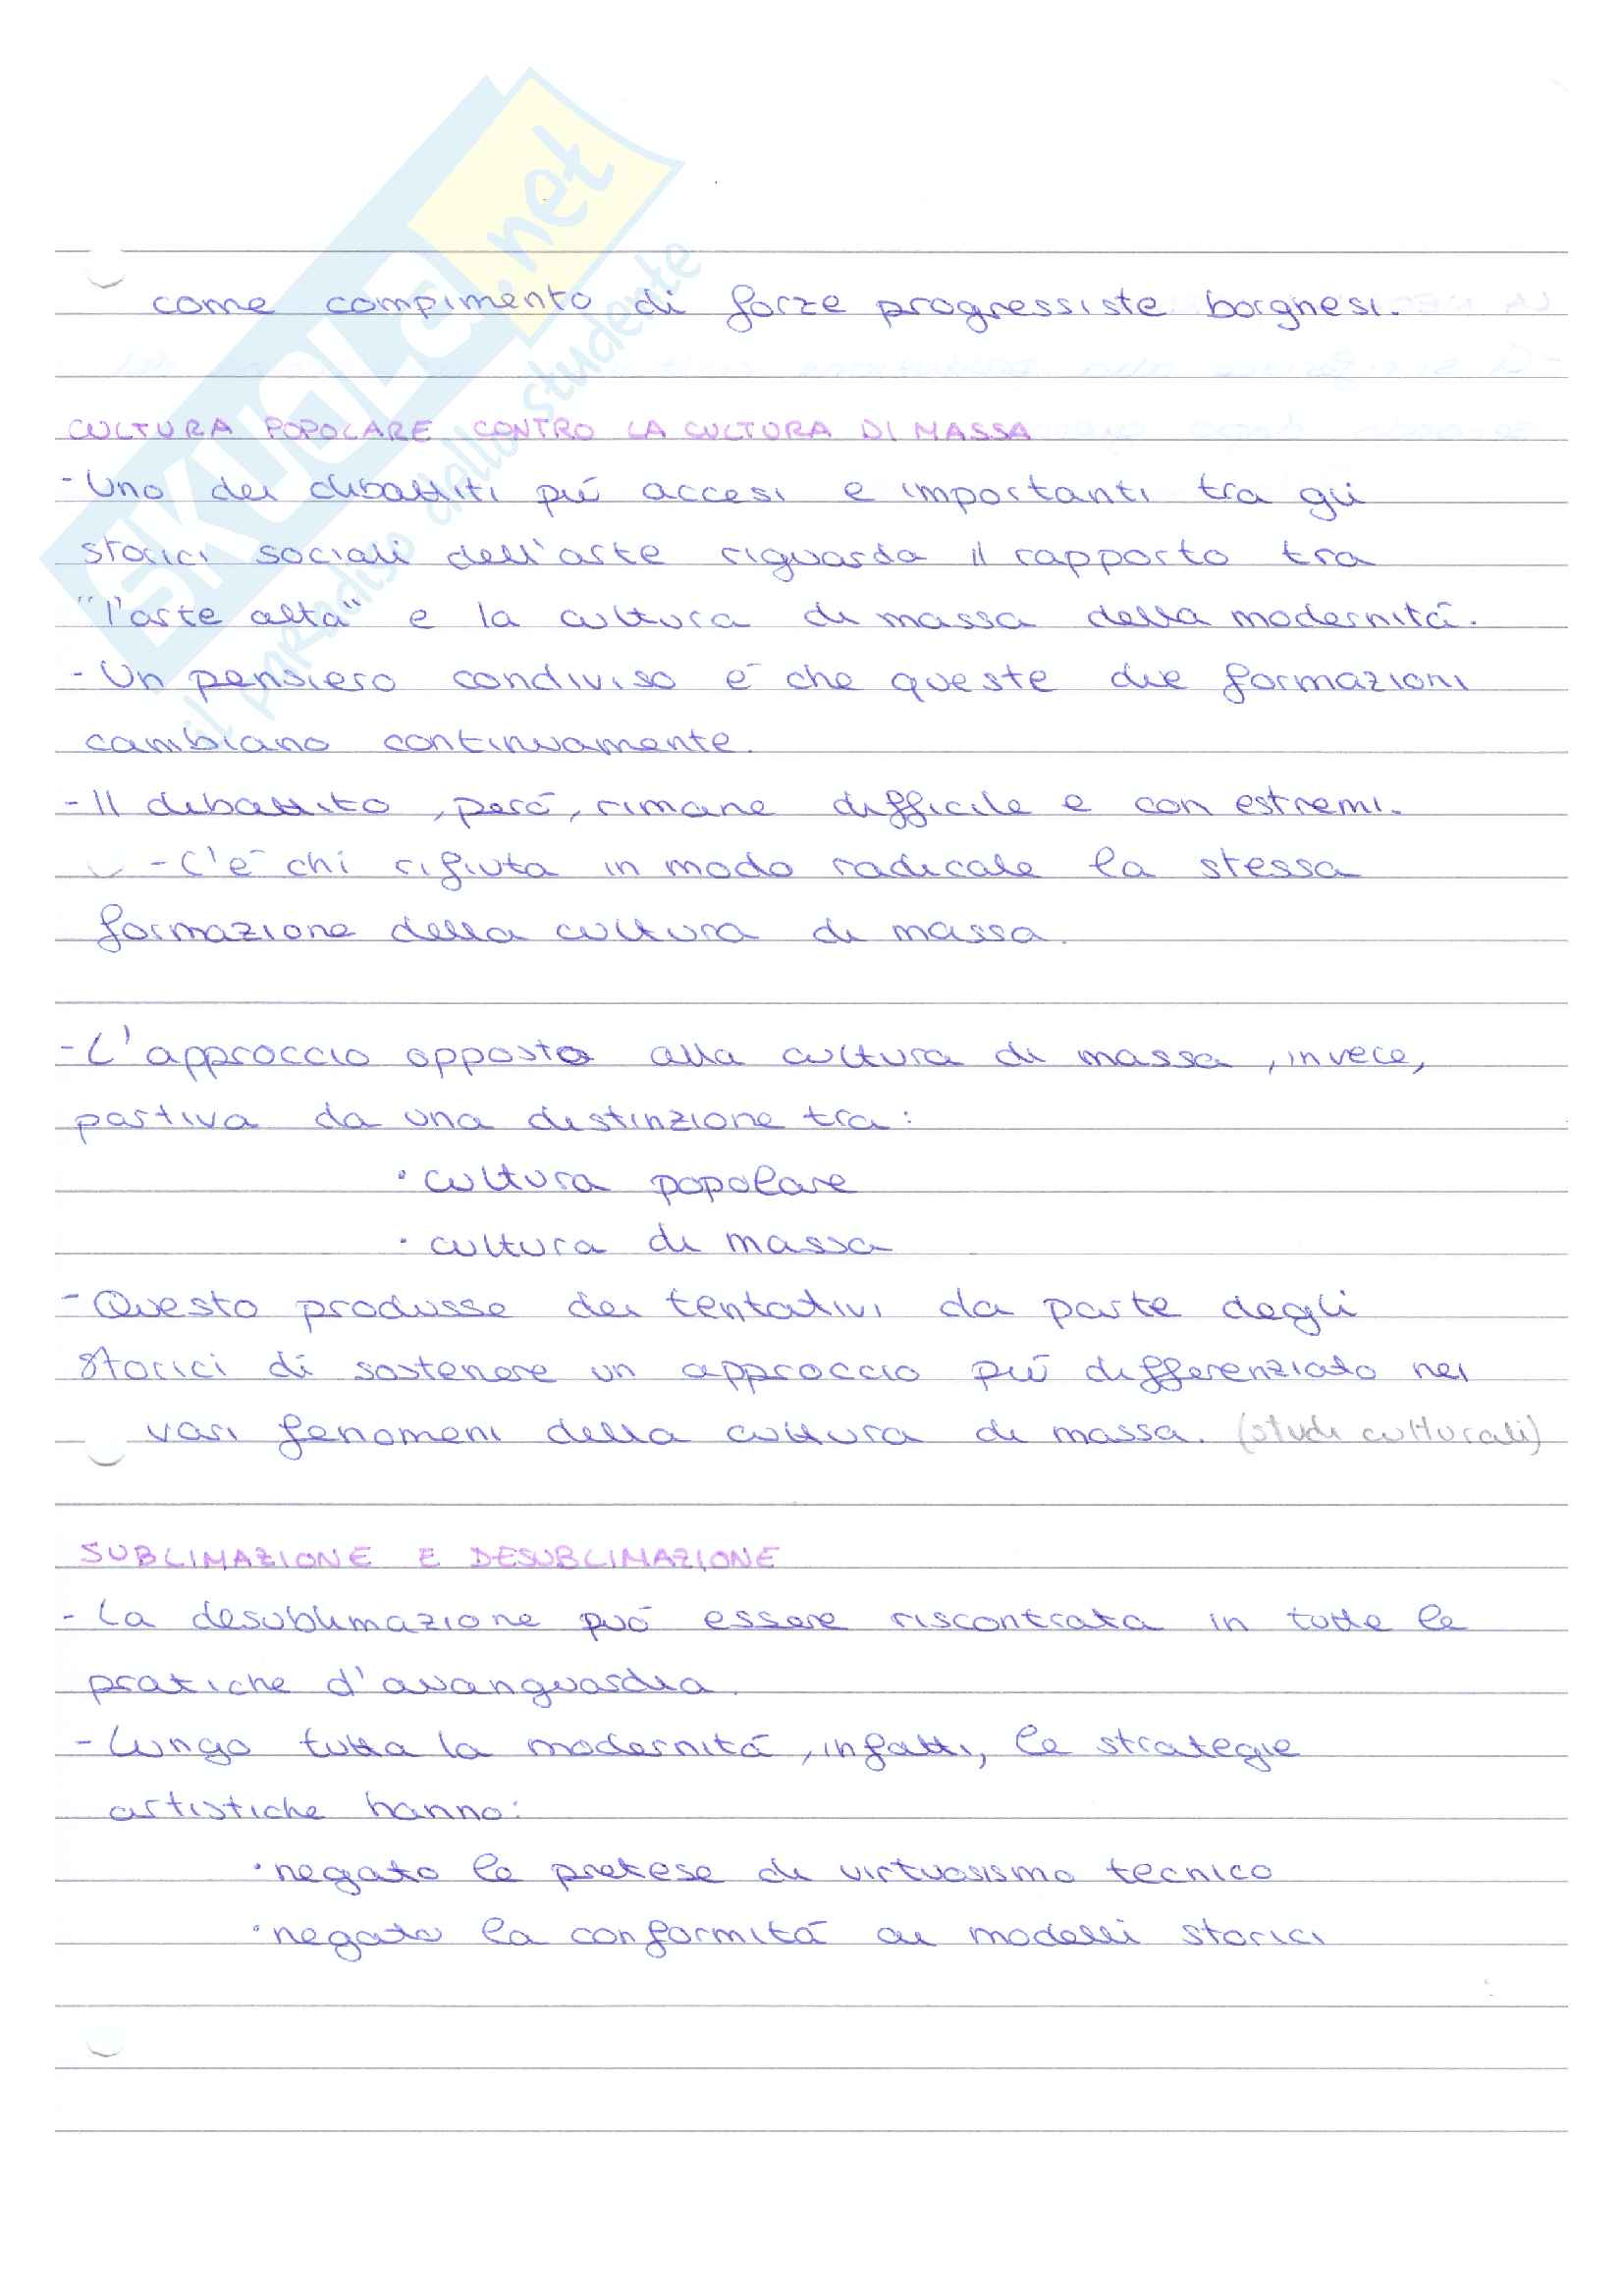 SKUOLA.net
il paradiso dello studente
come compimento di forze progressiste borgnesi.
CULTURA POPOLARE CONTRO LA CULTURA DI MASSA
- Uno dei dibattiti più accesi e importanti tra gli
storici sociali dell'arte riguarda il rapporto tra
"l'arte alta" e la cultura di massa della modernità.
- Un pensiero condiviso è che queste due formazioni
cambiano continuamente.
- Il dibattito, però, rimane difficile e con estremi.
- C'è chi rifiuta in modo radicale la stessa
formazione della cultura di massa.
- L'approccio opposto alla cultura di massa, invece,
partiva da una distinzione tra:
• cultura popolare
• cultura di massa
- Questo produsse dei tentativi da parte degli
storici di sostenere un approccio più differenziato nei
vari fenomeni della cultura di massa. (studi culturali)
SUBLIMAZIONE E DESUBLIMAZIONE
- La desublimazione può essere riscontrata in tutte le
pratiche d'avanguardia.
- Lungo tutta la modernità, infatti, le strategie
artistiche hanno:
• negato le pretese di virtuosismo tecnico
• negato la conformità ai modelli storici